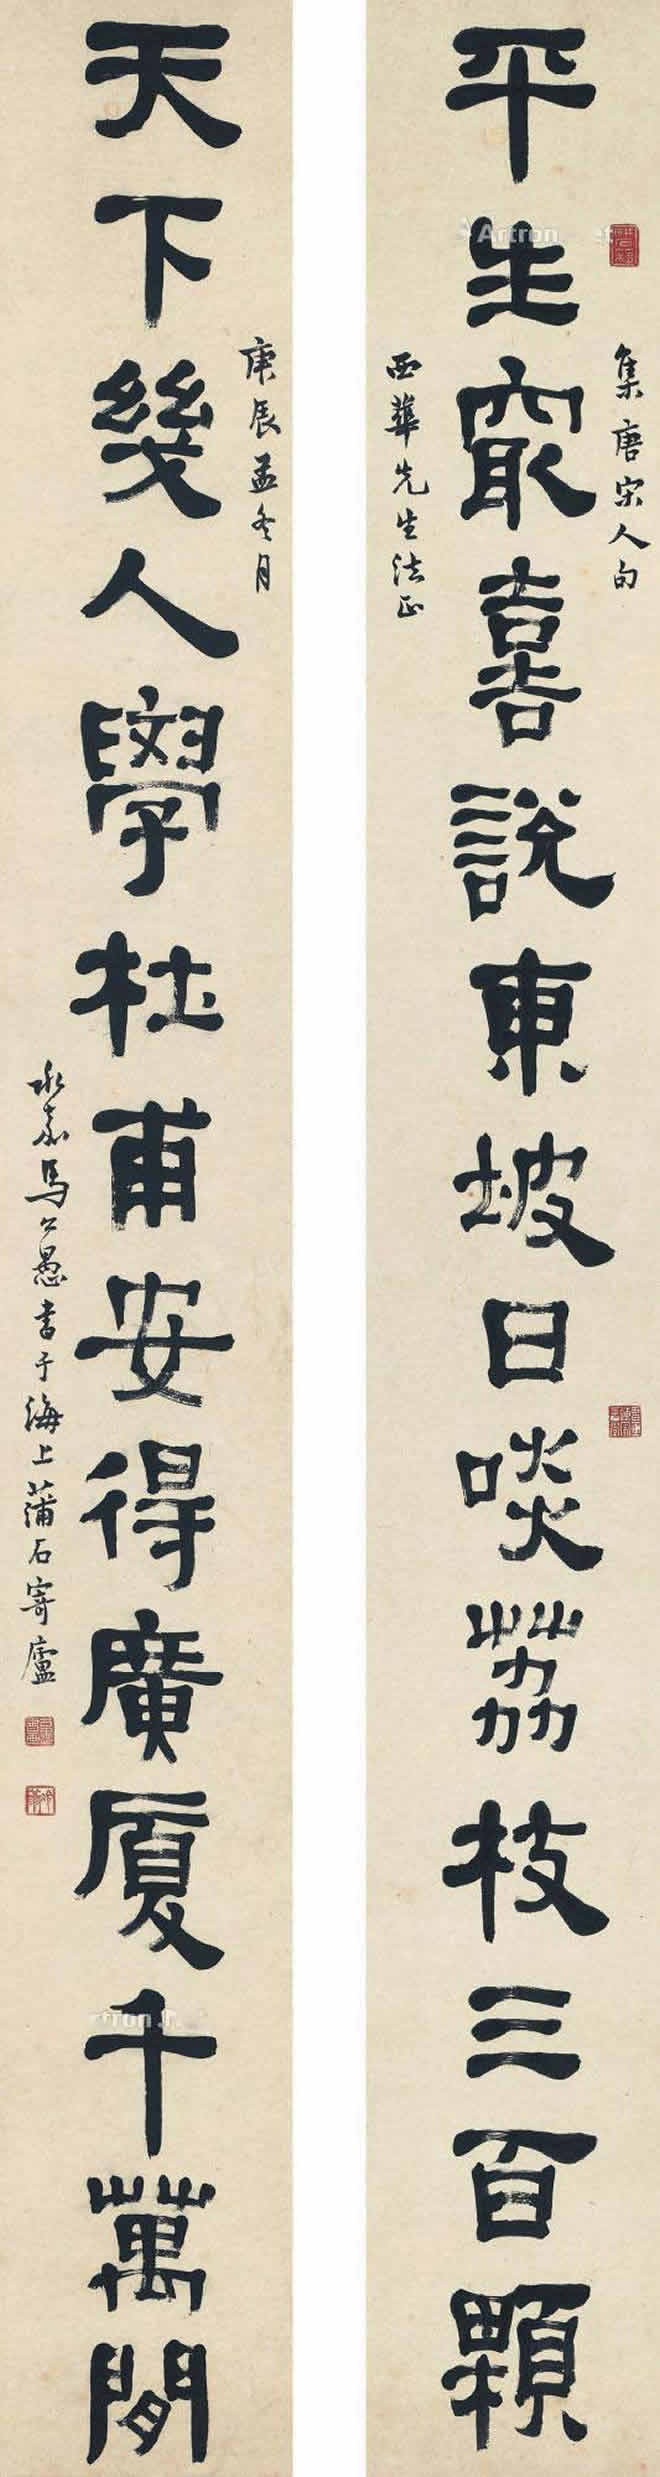 集唐宋人句
平生最喜說東坡日啖荔枝三百顆
西華先生法正
庚辰孟冬月
天下幾人學杜甫安得廣厦千萬間
永嘉馬公愚書于海上蒲石寄廬